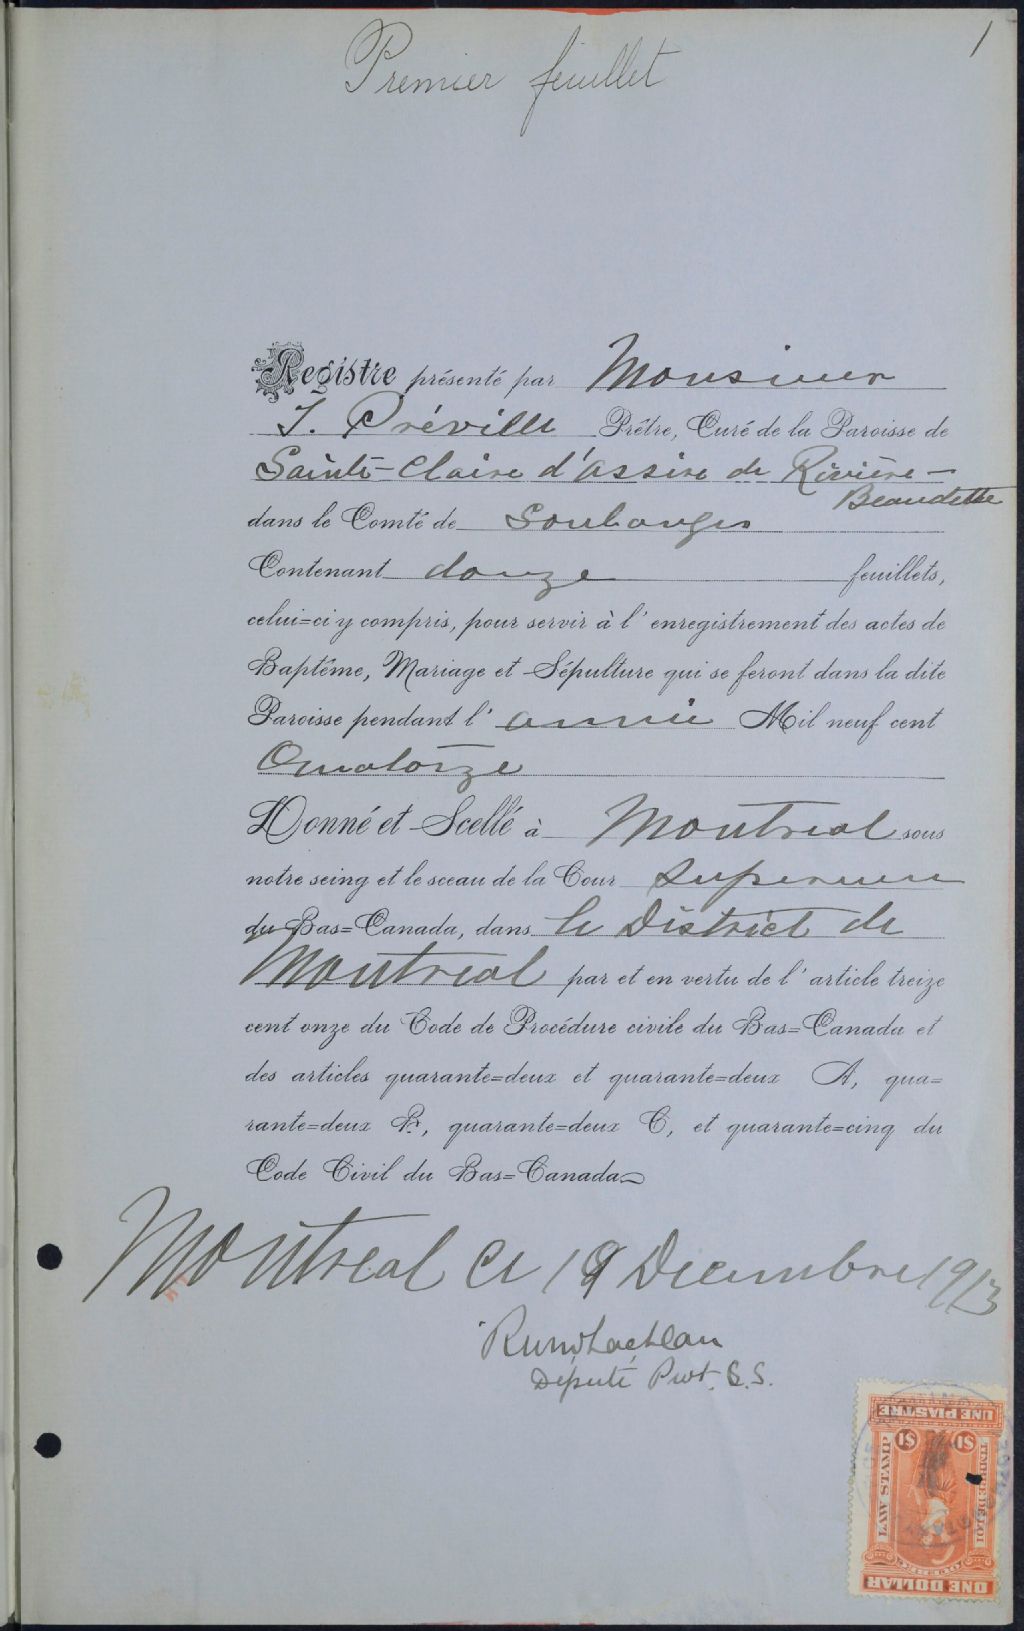 1
Premier feuillet
Registre présenté par Monsieur
J. Préville Prêtre, Curé de la Paroisse de
Sainte-Claire d'Assise de Rivière-
Beaudette
dans le Comté de Soulanges
Contenant douze feuillets,
celui=ci y compris, pour servir à l'enregistrement des actes de
Baptême, Mariage et Sépulture qui se feront dans la dite
Paroisse pendant l'année Mil neuf cent
Quatorze
Donné et Scellé à Montreal sous
notre seing et le sceau de la Cour Superieure
du Bas=Canada, dans le District de
Montreal par et en vertu de l'article treize
cent onze du Code de Procédure civile du Bas=Canada et
des articles quarante=deux et quarante=deux A, qua=
rante=deux B, quarante=deux C, et quarante=cinq du
Code Civil du Bas=Canada
Montreal ce 19 Decembre 1913
Député Prot. C.S.
UNE PIASTRE
$1 $1
LAW STAMP
TIMBRE DE LOI
QUEBEC
ONE DOLLAR